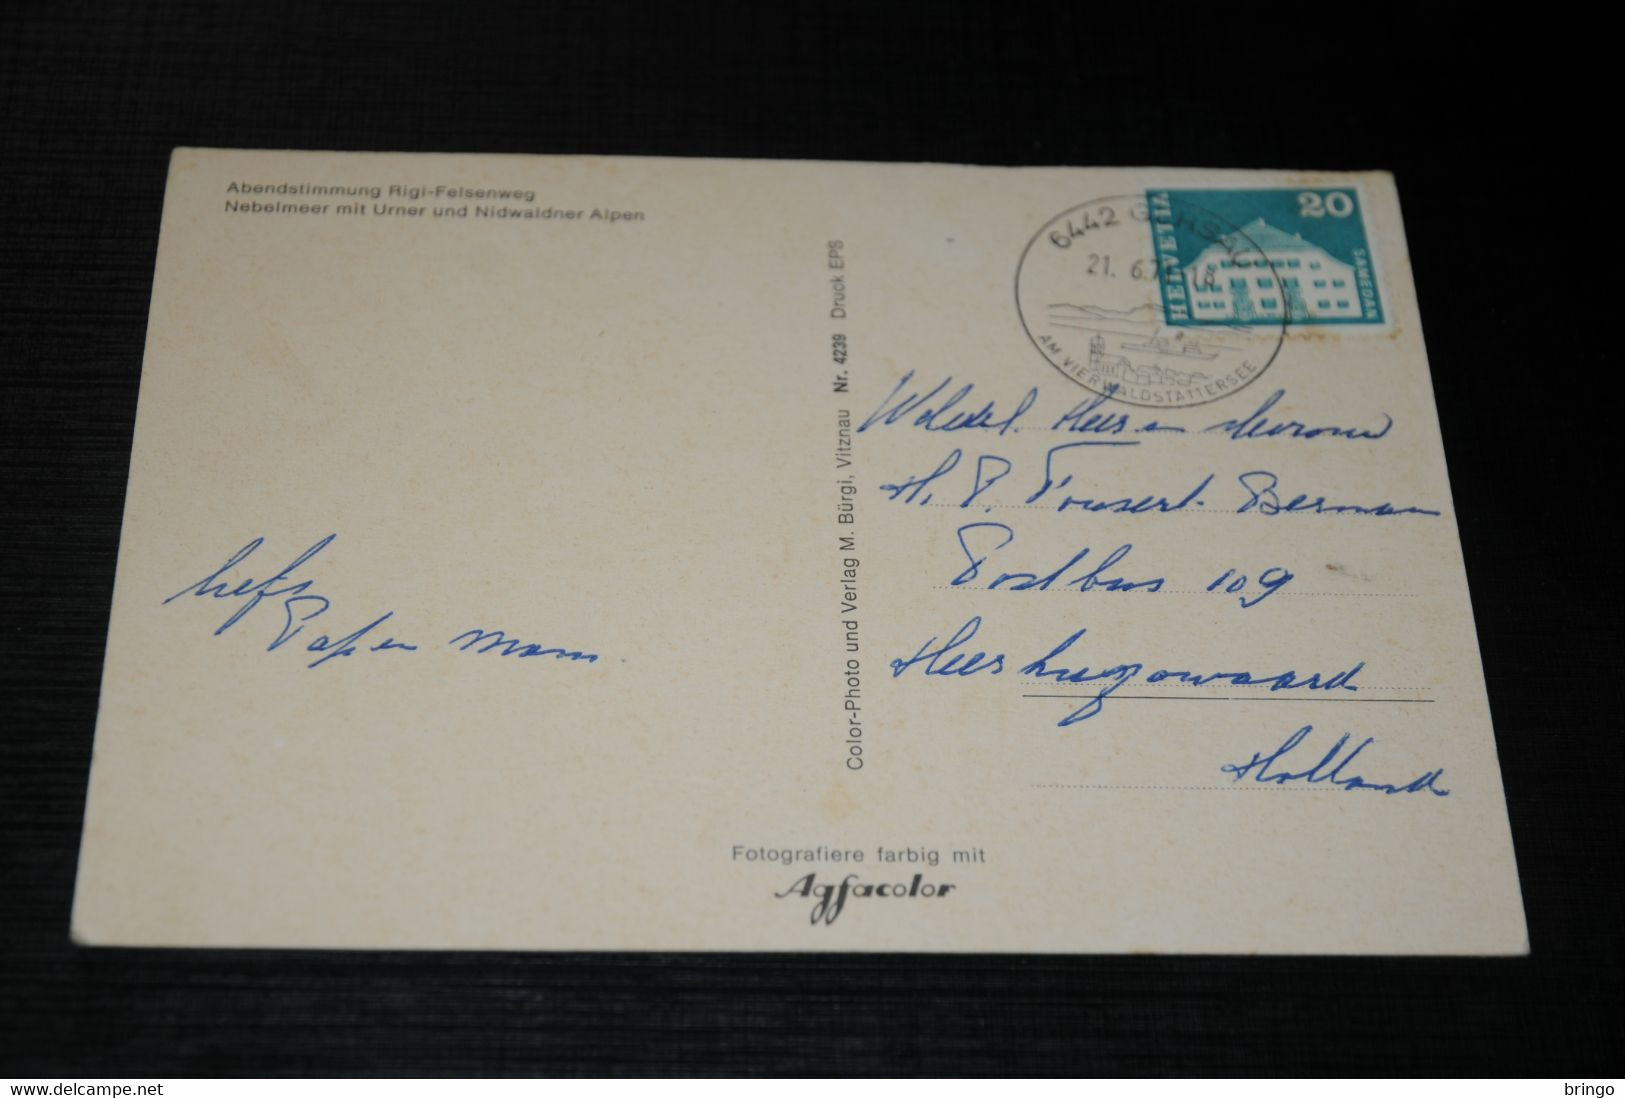 Abendstimmung Rigi-Felsenweg
Nebelmeer mit Urner und Nidwaldner Alpen
Color-Photo und Verlag M. Bürgi, Vitznau Nr. 4239 Druck EPS
6442 GERSAU
21. 6.7 18
AM VIERWALDSTÄTTERSEE
HELVETIA
20
SAMEDAN
Heer en Mevrouw
H. P. Berman
Postbus 109
Heerhugowaard
Holland
liefs
Pa en Mam
Fotografiere farbig mit
Agfacolor
© www.delcampe.net
bringo